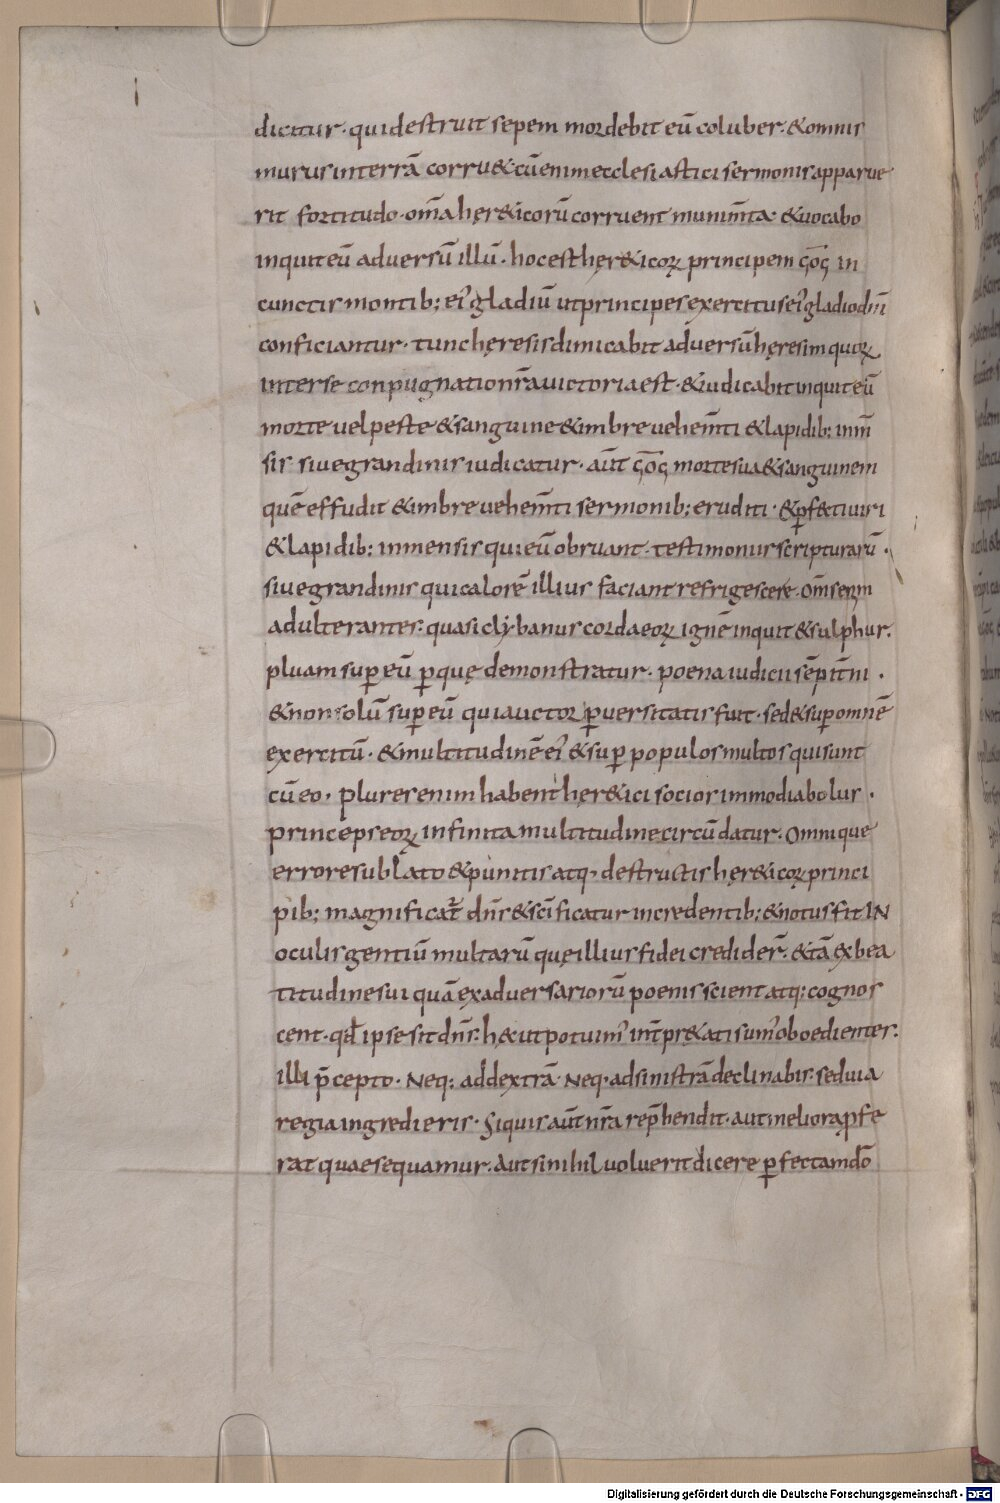 dicitur· qui destruit sepem mordebit eū coluber· &omnis
murus in terrā corru& cū enim ecclesiastici sermonis apparue
rit fortitudo· om̄a hęr&icorū corruent munim̄ta· &uocabo
inquit eū adversū illū· hoc est hęr&icoꝝ principem in
cunctis montib; ei' gladiū ut principes exercitus ei' gladio dn̄i
conficiantur· tunc hęresis dimicabit adversū hęresim quoꝝ
inter se conpugnatio nr̄a uictoria est· &iudicabit inquit eū
morte uel peste &sanguine &imbre uehem̄ti &lapidib; inm̄
sis siue grandinis iudicatur· aūt morte sua &sanguinem
quē effudit &imbre uehem̄ti sermonib; eruditi· &ꝑf&ti uiri
&lapidib; inmensis qui eū obruant· testimoniis scripturarū·
siue grandinis qui calorē illius faciant refrigescere·
adulterantes· quasi clybanus corda eoꝝ ignē inquit &sulphur·
pluam suꝑ eū ꝑ quę demonstratur· poena iudicii sēpit̄ni·
&non solū suꝑ eū qui auctor ꝑuersitatis fuit· sed &suꝑ omnē
exercitū· &multitudinē ei' &suꝑ populos multos qui sunt
cū eo· plures enim habent hęr&ici socios immo diabolus·
princeps eoꝝ infinita multitudine circūdatur· Omnique
errore sublato &punitis atq· destructis hęr&icoꝝ princi
pib; magnificat̄ dn̄s &sc̄ificatur in credentib; &notus fit IN
oculis gentiū multarū quę illius fidei credider̄· &tā ex bea
titudine sui quā ex adversariorū poenis scient atq; cognos
cent· qđ ipse sit dn̄s· hęc ut potuim' int̄pr&ati sum' oboedientes·
illi p̄cepto· Neq; ad dextrā· Neq· ad sinistrā declinabis· sed uia
regia ingredieris· Si quis aūt nr̄a rep̄hendit· aut meliora ꝓfe
rat quae sequamur· Aut si nihil uoluerit dicere ꝑfectam dō
Digitalisierung gefördert durch die Deutsche Forschungsgemeinschaft - DFG